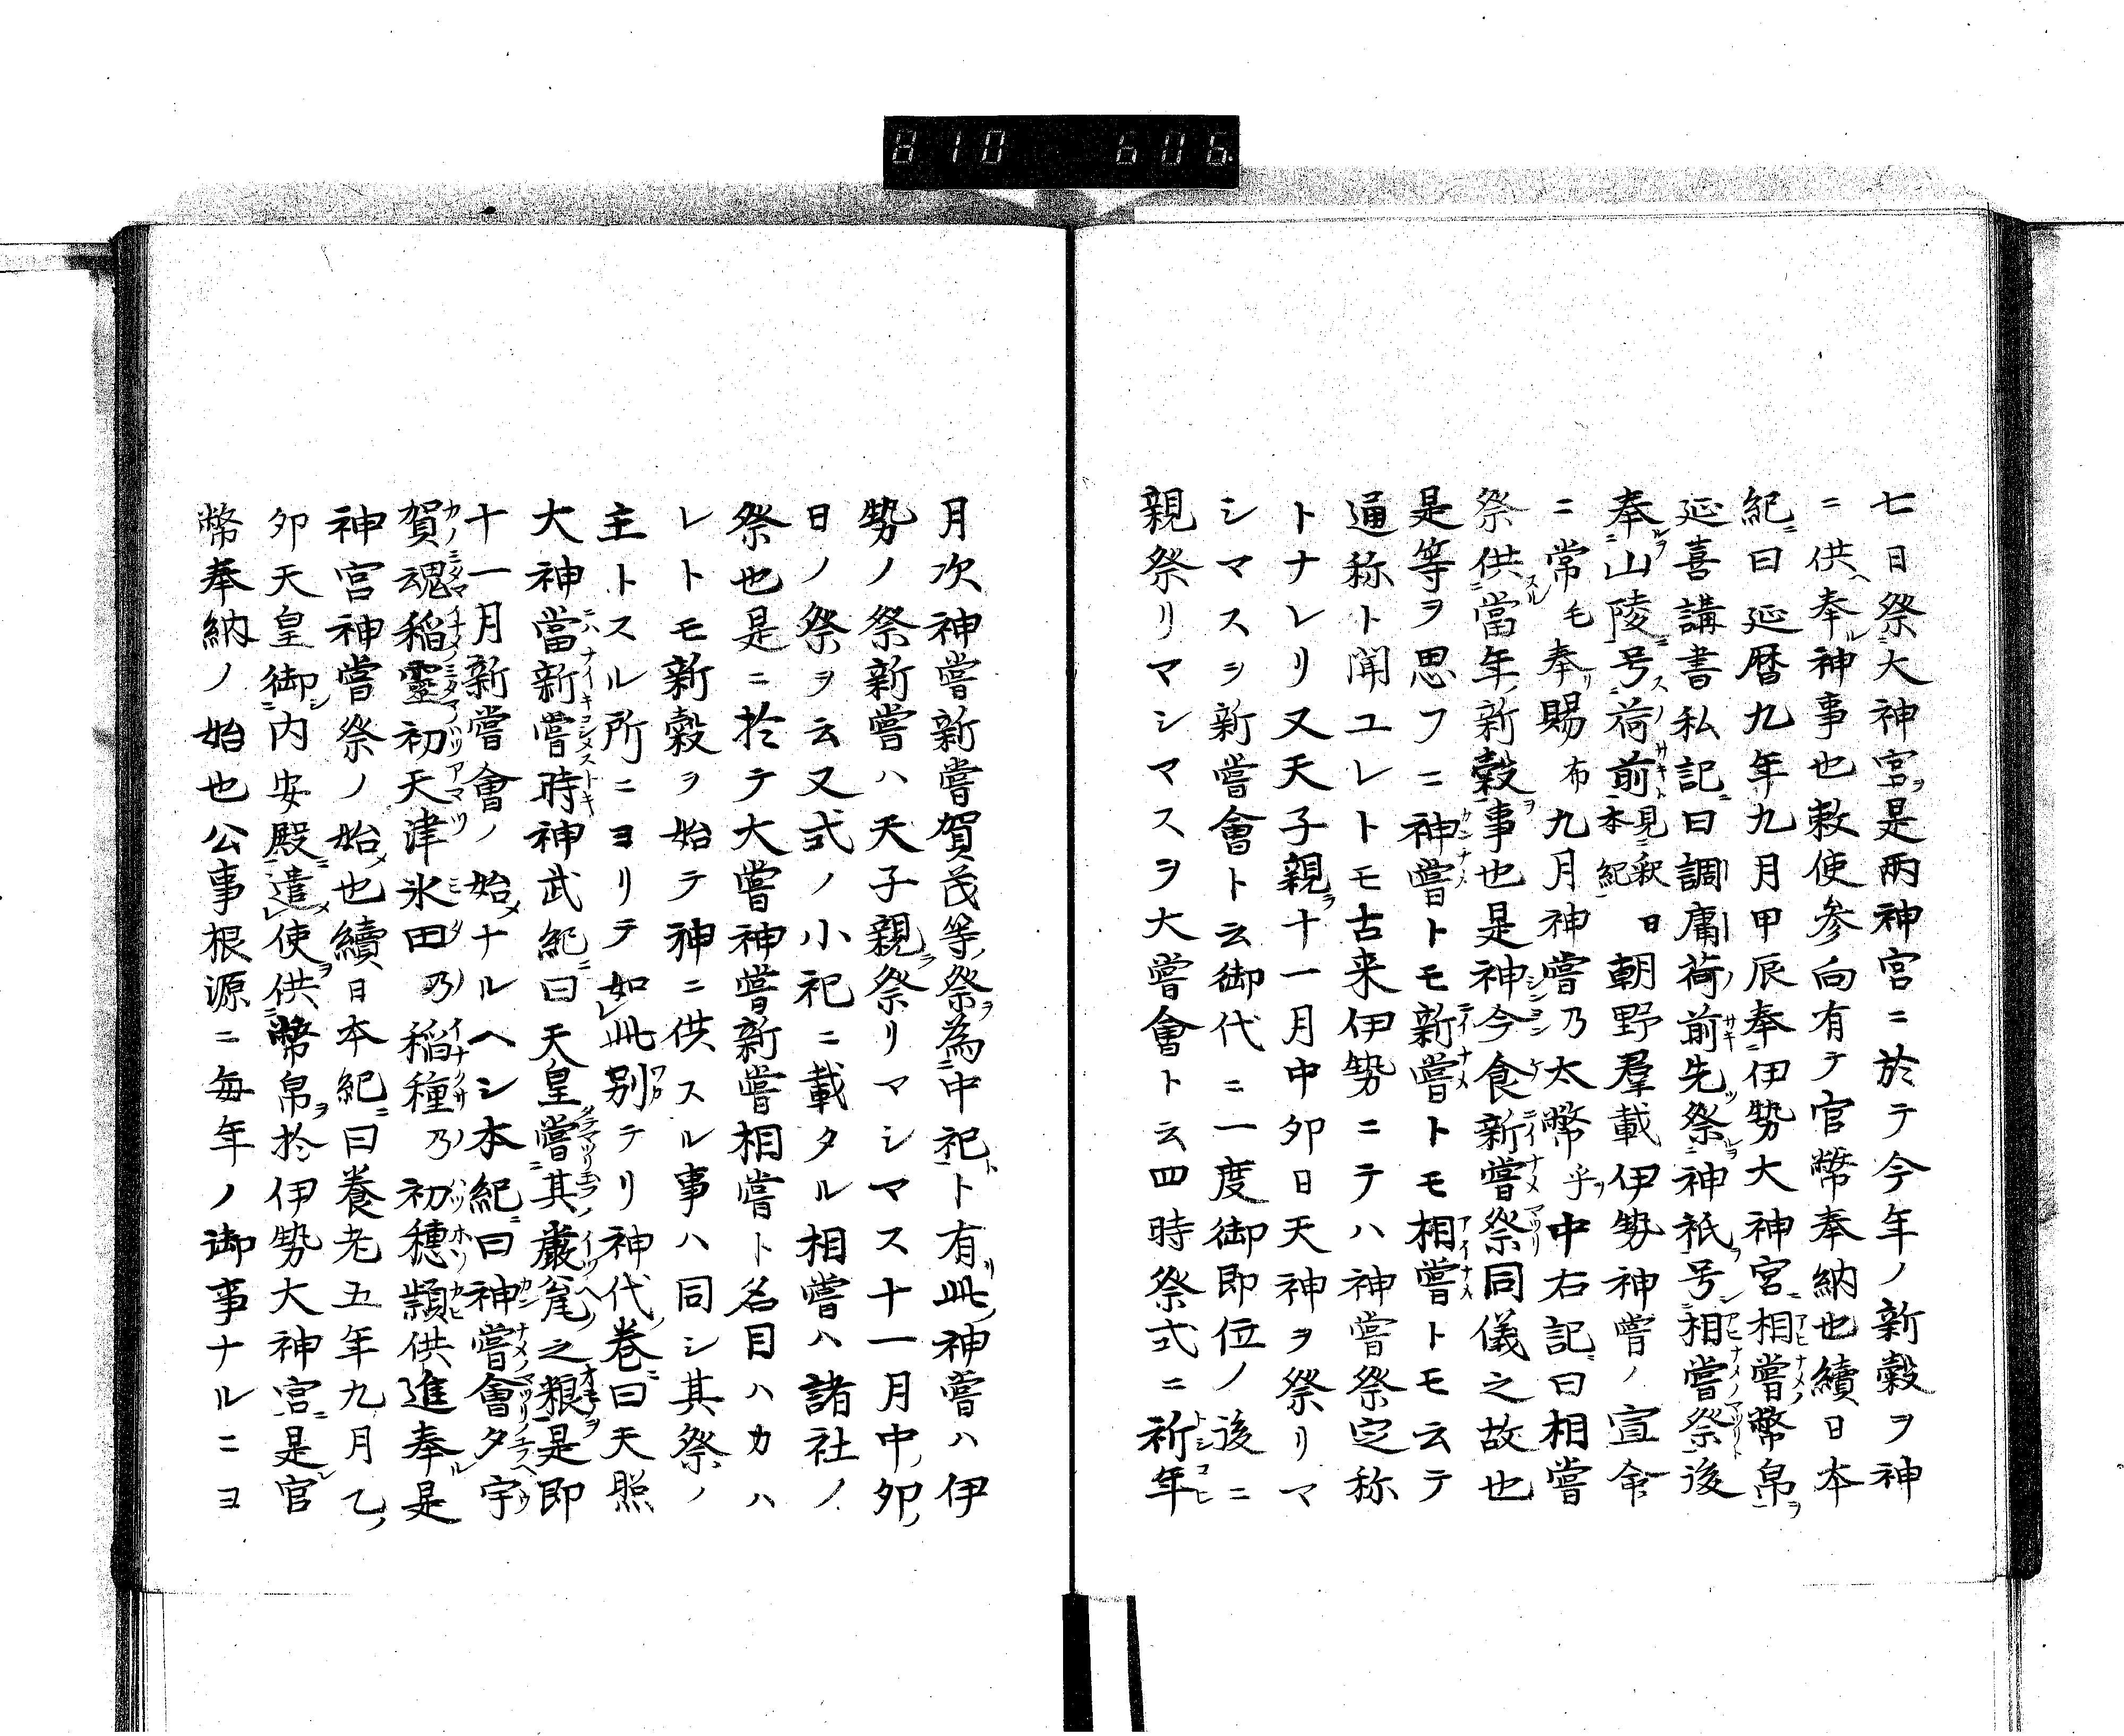 810 606.
七日祭大神宮是両神宮ニ於テ今年ノ新穀ヲ神
ニ供奉神事也敕使参向有テ官幣奉納也續日本
紀曰延暦九年九月甲辰奉伊勢大神宮相嘗幣帛
延喜講書私記曰調庸荷前先祭神祇号相嘗祭後
奉山陵号荷前見釈本紀曰朝野羣載伊勢神嘗ノ宣命
ニ常毛奉賜布九月神嘗乃太幣乎中右記曰相嘗
祭供當年新穀事也是神今食新嘗祭同儀之故也
是等ヲ思フニ神嘗トモ新嘗トモ相嘗トモ云テ
通称ト聞ユレトモ古来伊勢ニテハ神嘗祭定称
トナレリ又天子親十一月中卯日天神ヲ祭リマ
シマスヲ新嘗會ト云御代ニ一度御即位ノ後ニ
親祭リマシマスヲ大嘗會ト云四時祭式ニ祈年
月次神嘗新嘗賀茂等祭為中祀ト有此神嘗ハ伊
勢ノ祭新嘗ハ天子親祭リマシマス十一月中卯
日ノ祭ヲ云又式ノ小祀ニ載タル相嘗ハ諸社ノ
祭也是ニ於テ大嘗神嘗新嘗相嘗ト名目ハカハ
レトモ新穀ヲ始テ神ニ供スル事ハ同シ其祭ノ
主トスル所ニヨリテ如此別テリ神代巻曰天照
大神當新嘗時神武紀曰天皇嘗其嚴瓮之粮是即
十一月新嘗會ノ始ナルヘシ本紀曰神嘗會夕宇
賀魂稲靈初天津氷田乃稲種乃初穂顆供進奉是
神宮神嘗祭ノ始也續日本紀曰養老五年九月乙
卯天皇御内安殿遣使供幣帛於伊勢大神宮是官
幣奉納ノ始也公事根源ニ毎年ノ御事ナルニヨ